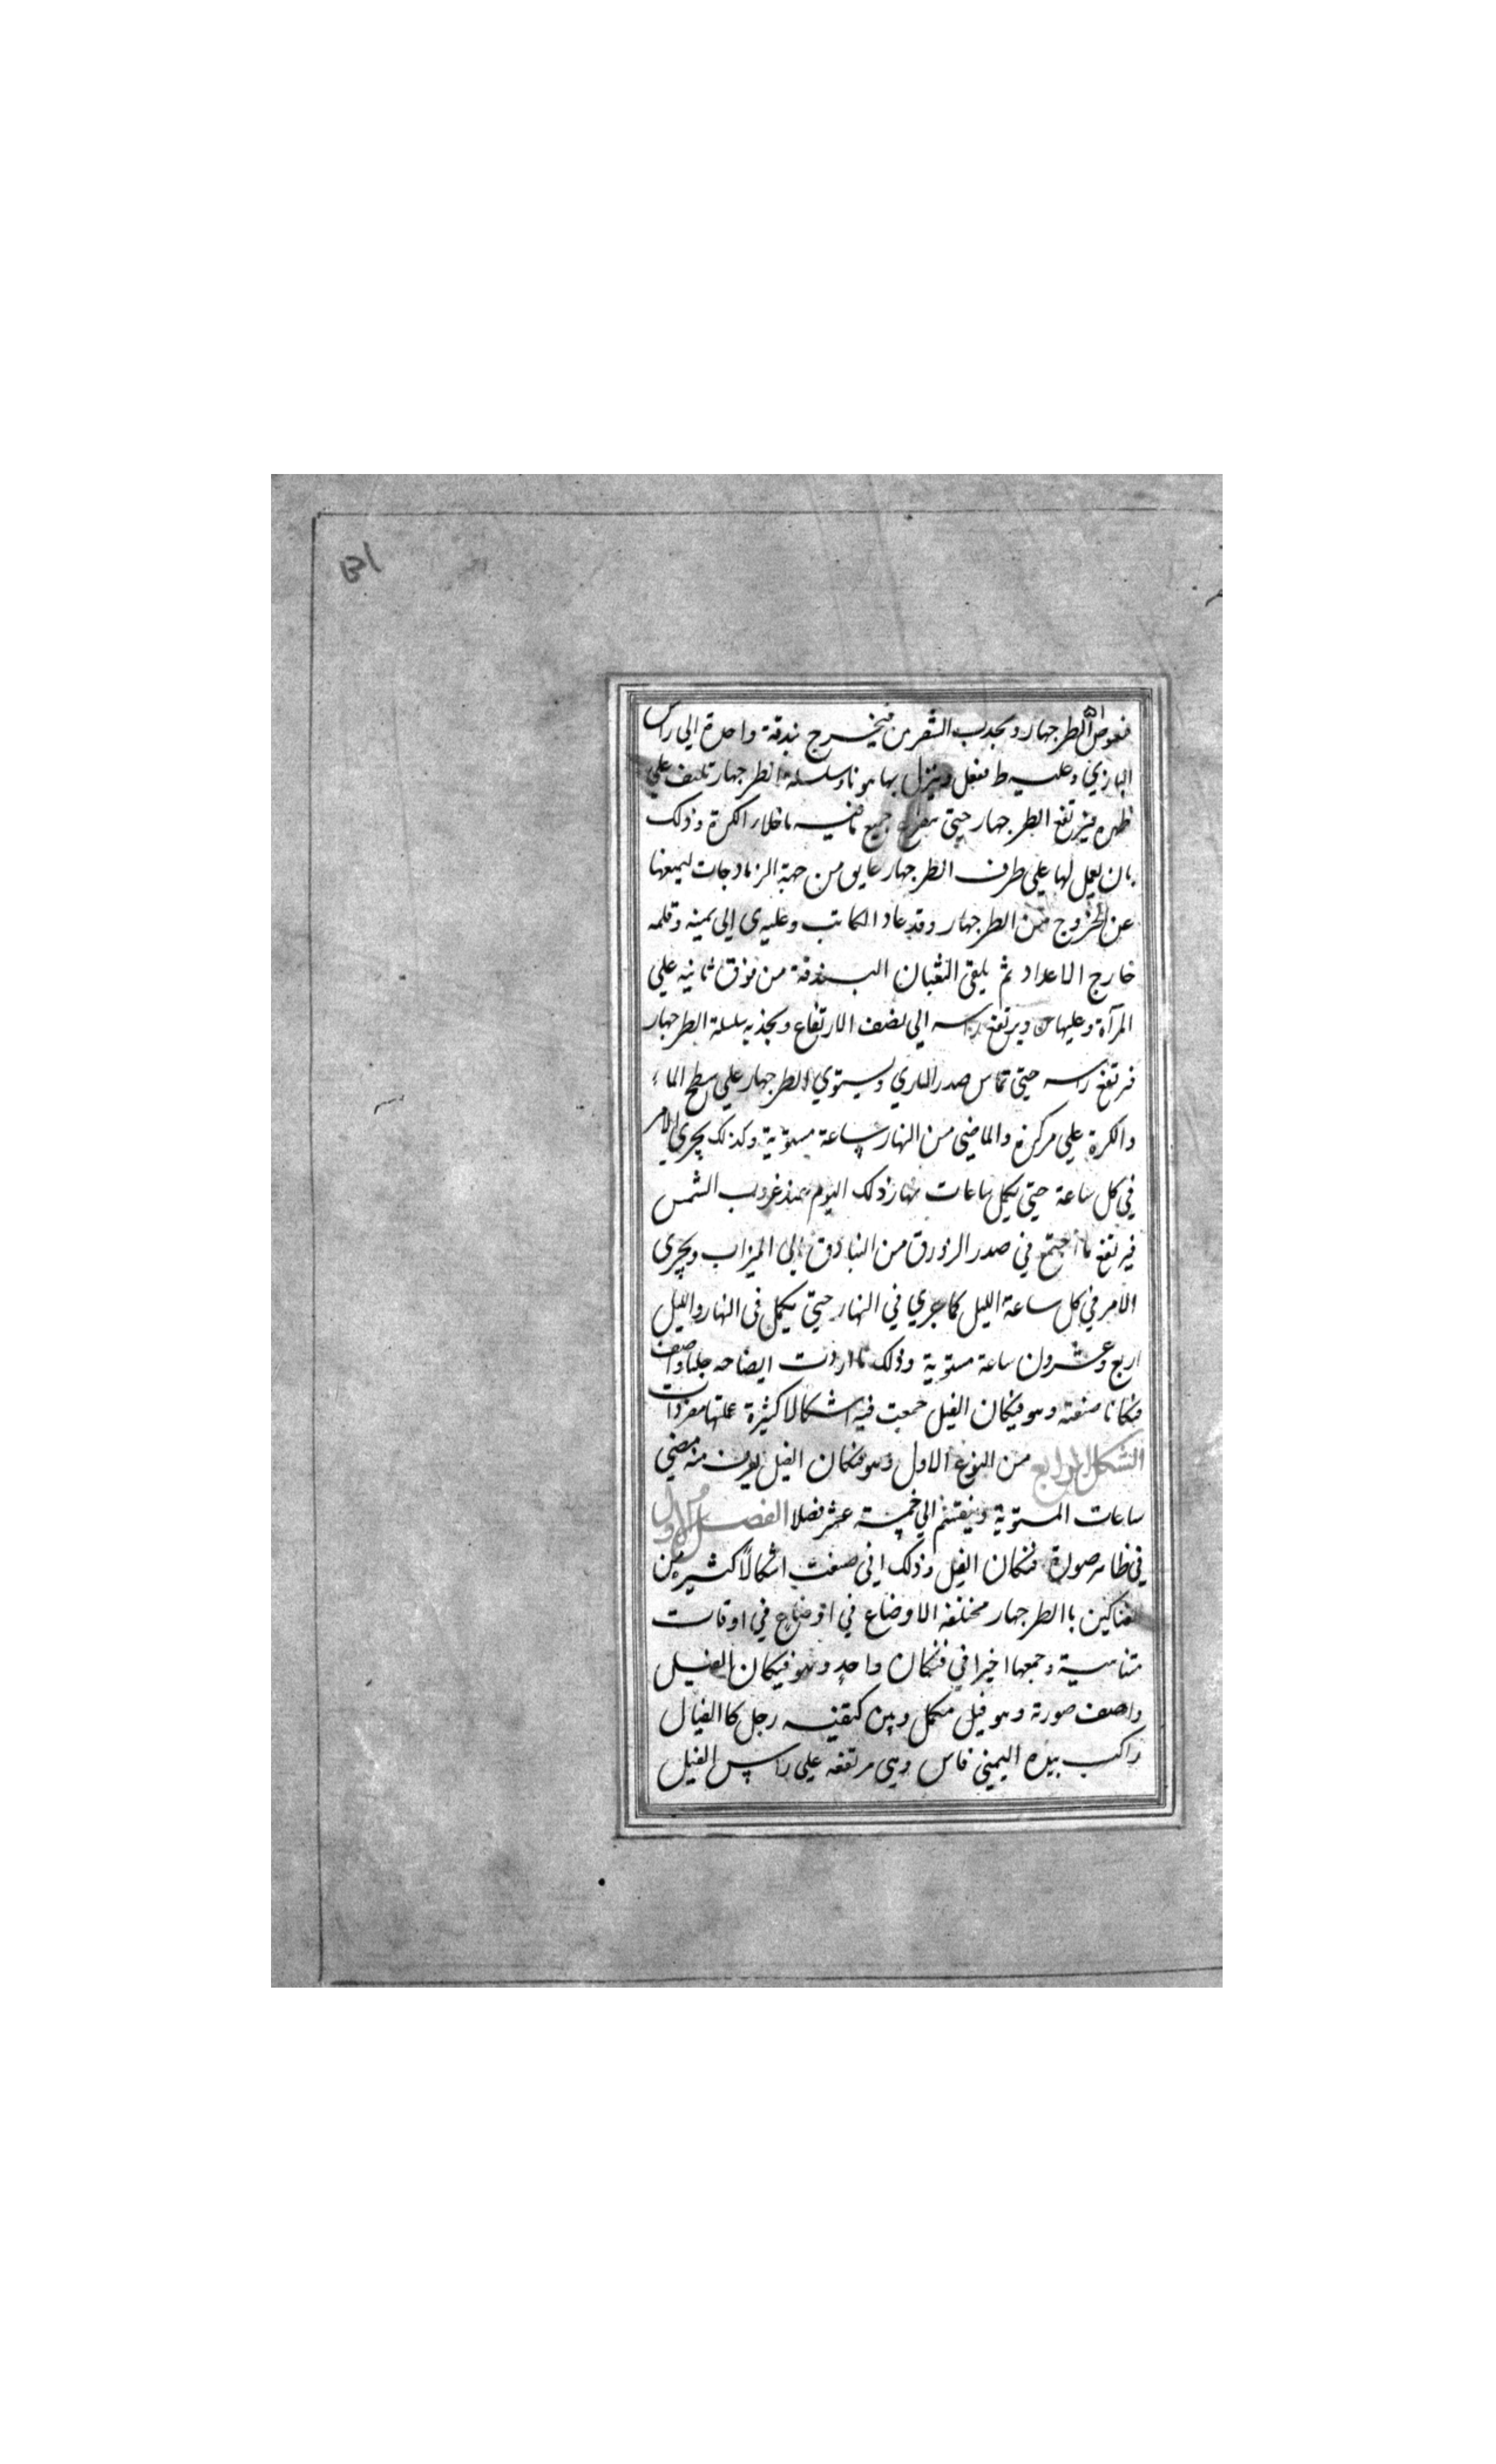 131
فيغوص الطرجهار ويجذب الشعرين فيخرج بندقة واحدة الي راس
البازي وعليه ط فيفعل وينزل بها هونا وسلسلة الطرجهار تلتف علي
ظهره فيرتفع الطرجهار حتي يتفرغ جميع ما فيه ما خلا الكرة وذلك
بان يعمل لها علي طرف الطرجهار عايق من جهة الرمادجات ليمنعها
عن الخروج من الطرجهار وقد عاد الكاتب وعليه ي الي يمينه وقلمه
خارج الاعداد ثم يلقي الثعبان البندقة من فوق ثانيه علي
المرآة وعليها ويرتفع راسه الي نصف الارتفاع ويجذبه سلسلة الطرجهار
فيرتفع راسه حتي تماس صدر البازي ويستوي الطرجهار علي سطح الماء
والكرة علي مركزه والماضي من النهار ساعة مستوية وكذلك يجري الامر
في كل ساعة حتي يكمل ساعات نهار ذلك اليوم عند غروب الشمس
فيرتفع ما اجتمع في صدر الزورق من البنادق الي الميزاب ويجري
الامر في كل ساعة الليل كما جري في النهار حتي يكمل في النهار والليل
اربع وعشرون ساعة مستوية وذلك ما اردت ايضاحه جليا واصف
فنكانا صنعته وهو فنكان الفيل جمعت فيه اشكالا كثيرة عملتها مفردات
الشكل الرابع من النوع الاول وهو فنكان الفيل يعرف منه مضي
ساعات المستوية وينقسم الي خمسة عشر فصلا الفصل الاول
في ظاهر صورة فنكان الفيل وذلك اني صنعت اشكالا كثيرة من
الفناكين باالطرجهار مختلفة الاوضاع في اوضاع في اوقات
متناسبة وجمعها اخيرا في فنكان واحد وهو فنكان الفيل
واصف صورة وهو فيل مكمل وبين كتفيه رجل كا الفيال
راكب بيده اليمني فاس وهي مرتفعه علي راس الفيل